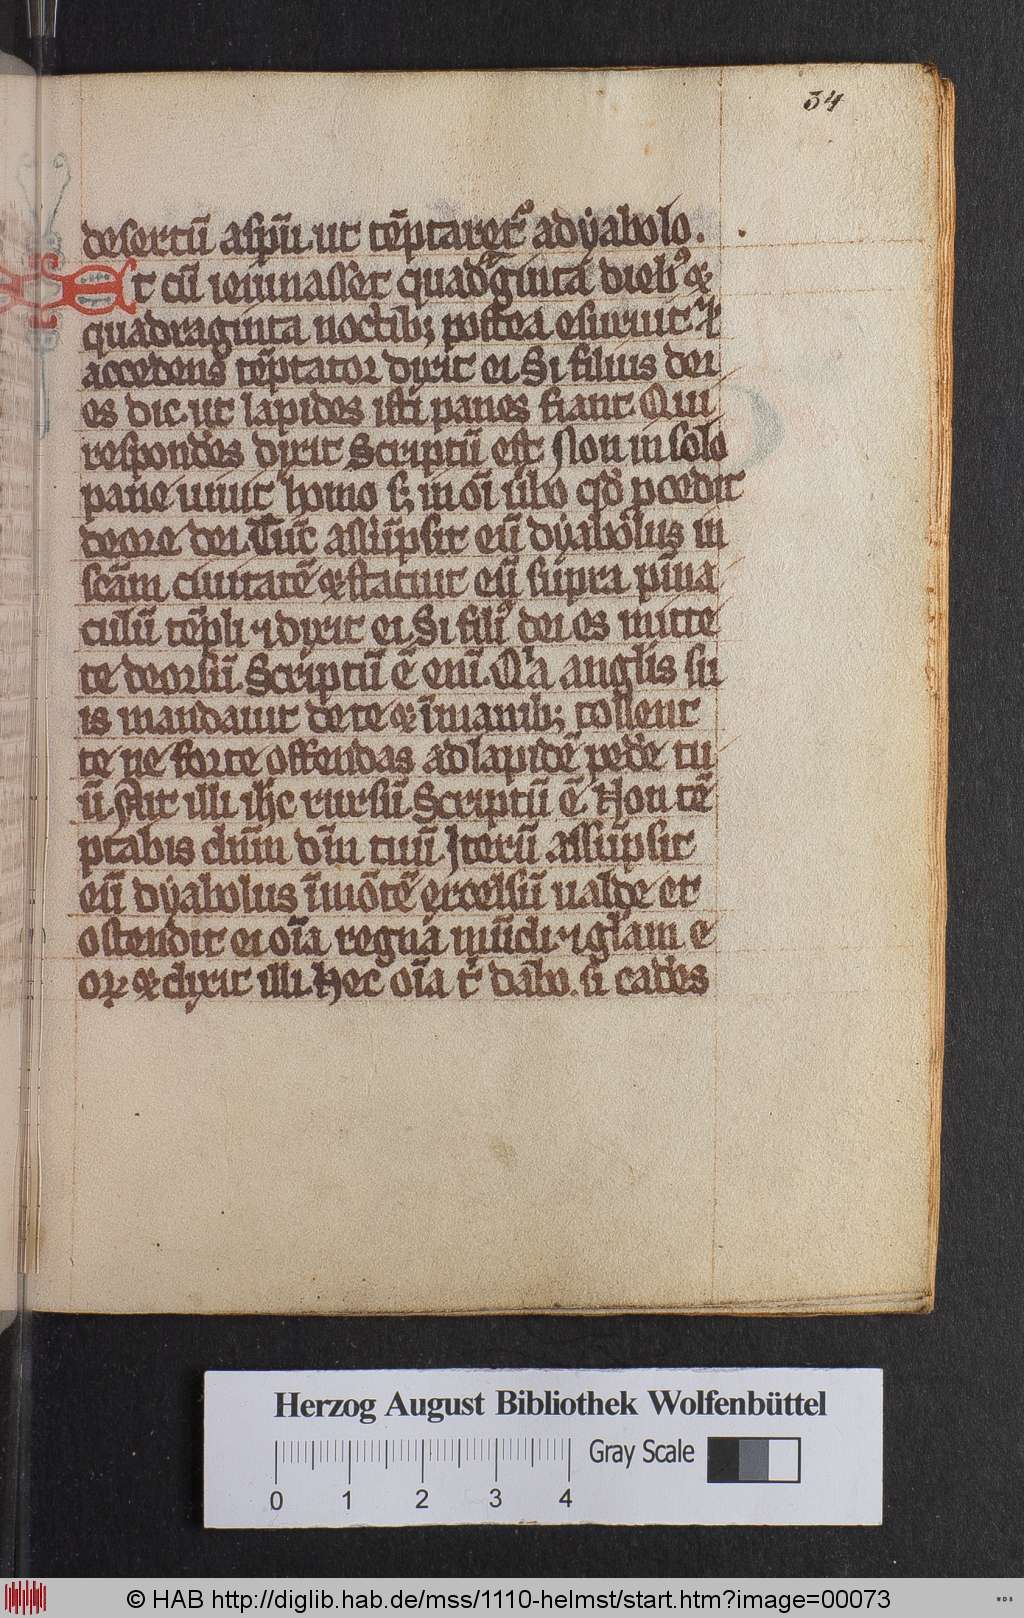 34
desertū a spū ut tēptaret᷒ a dyabolo.
Et cū ieiunasset quadͣginta dieb᷒ ⁊
quadraginta noctib; postea esuriit. ⁊
accedens tēptator dixit ei. Si filius dei
es dic ut lapides isti panes fiant. Qui
respondēs dixit Scriptū est Non in solo
pane uiuit homo s; in oī ūbo qd̓ ꝓcedit
de ore dei. Tūc assūpsit eū dyabolus in
scām ciuitatē ⁊ statuit eū supra pinna
culū tēpli ⁊ dixit ei. Si fili᷒ dei es mitte
te deorsū. Scriptū ē eni. Qͥa anglis su
is mandauit de te ⁊ ī manib; tollent
te ne forte offendas ad lapidē pedē tu
ū. Ait illi ihc rursū. Scriptū ē. Non tē
ptabis dnm dm tuū. Iterū assūpsit
eū dyabolus ī mōtē excelsū ualde et
ostendit ei oīa regna mūdi ⁊ glam e
oꝝ ⁊ dixit illi. Hec oīa tͥ dabo. si cadēs
Herzog August Bibliothek Wolfenbüttel
Gray Scale
0 1 2 3 4
© HAB http://diglib.hab.de/mss/1110-helmst/start.htm?image=00073